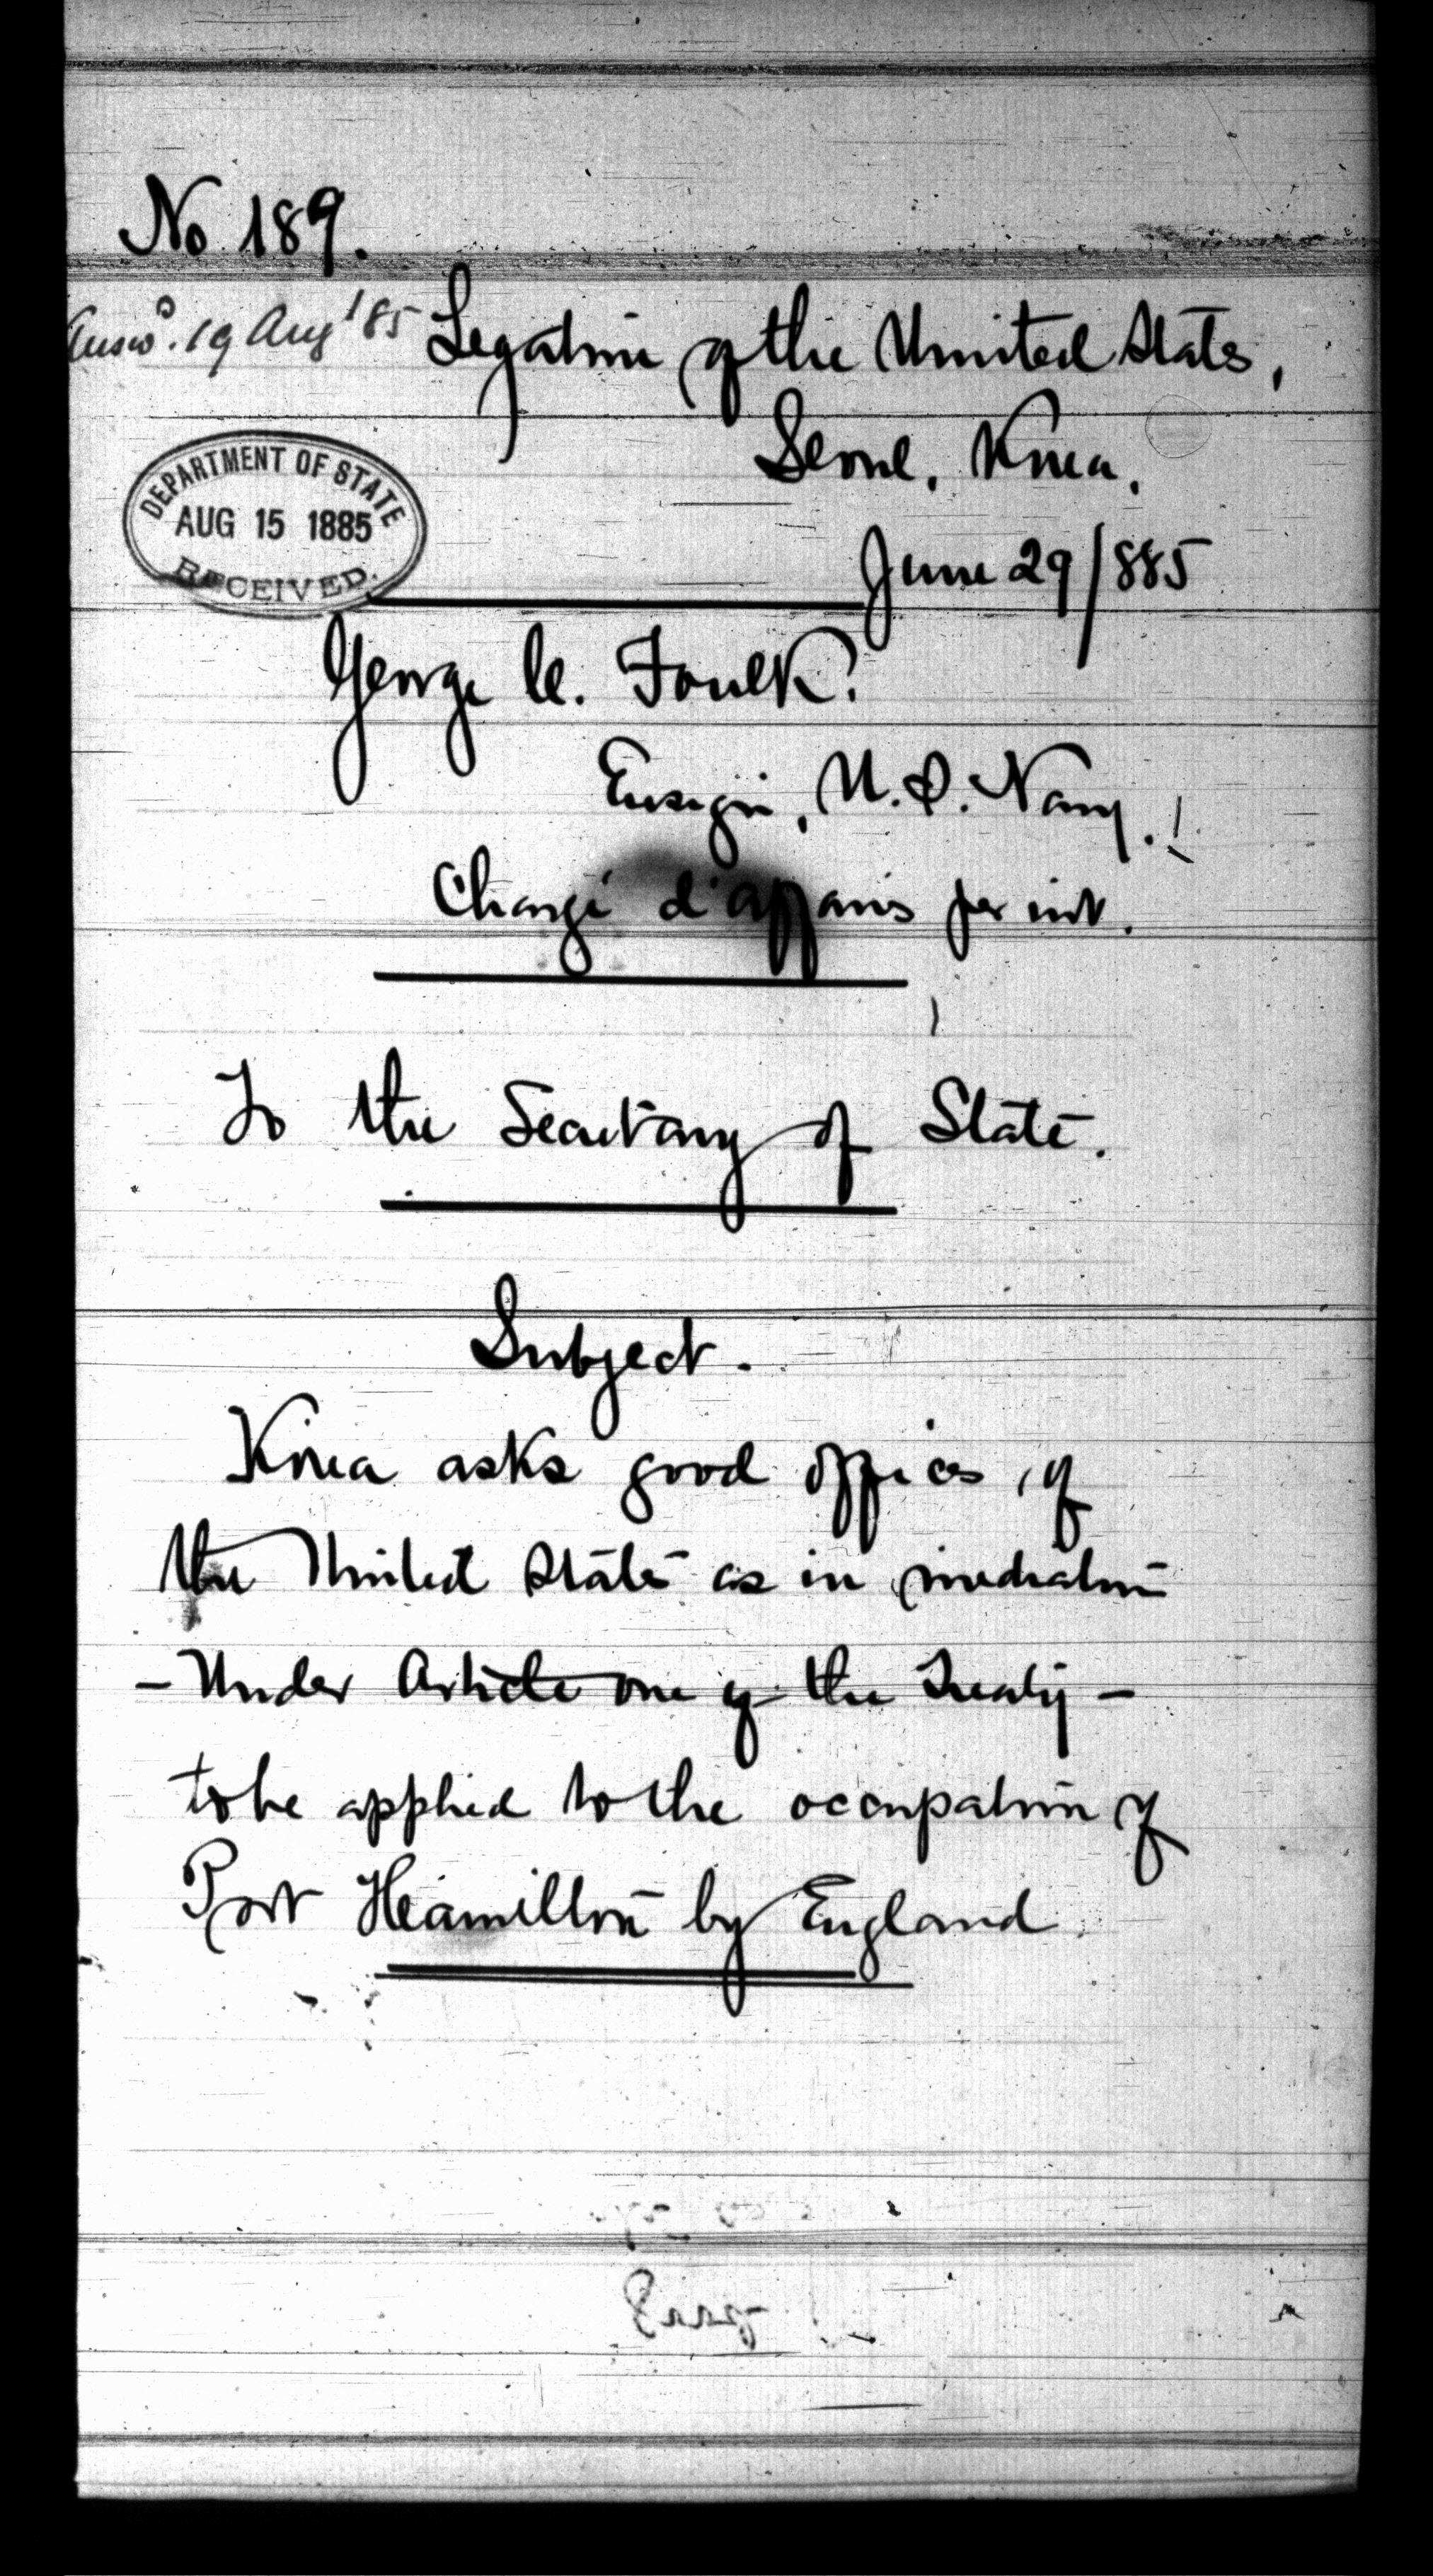 No 189.
Answd. 19 Aug '85
Legation of the United States,
Seoul, Korea,
DEPARTMENT OF STATE
AUG 15 1885
RECEIVED.
June 29/885
George C. Foulk.
Ensign, U.S. Navy.
Chargé d'affairs per int.
To the Secretary of State.
Subject.
Korea asks good offices of
the United States as in mediation
- Under Article one of the Treaty -
to be applied to the occupation of
Port Hamilton by England